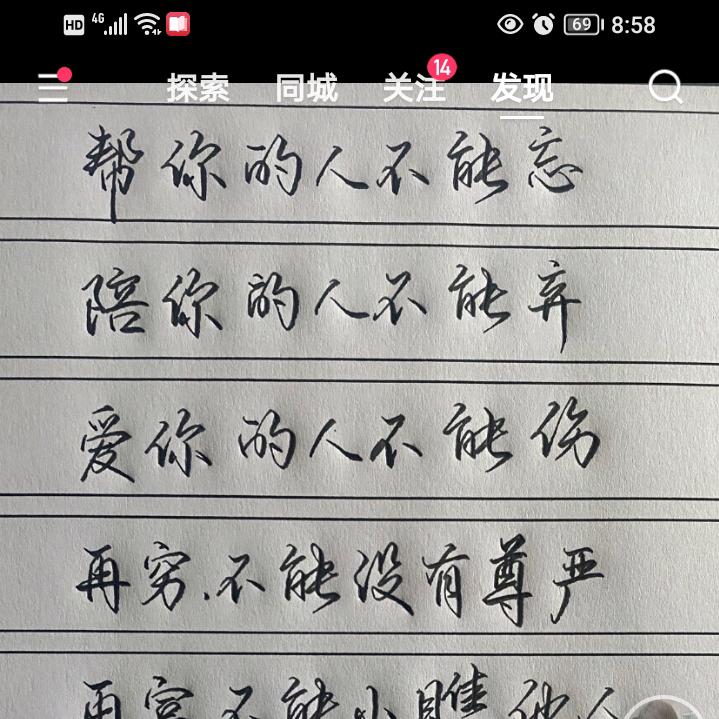 HD 4G 69 8:58
探索 同城 关注 14 发现
帮你的人不能忘
陪你的人不能弃
爱你的人不能伤
再穷.不能没有尊严
再富不能小瞧他人